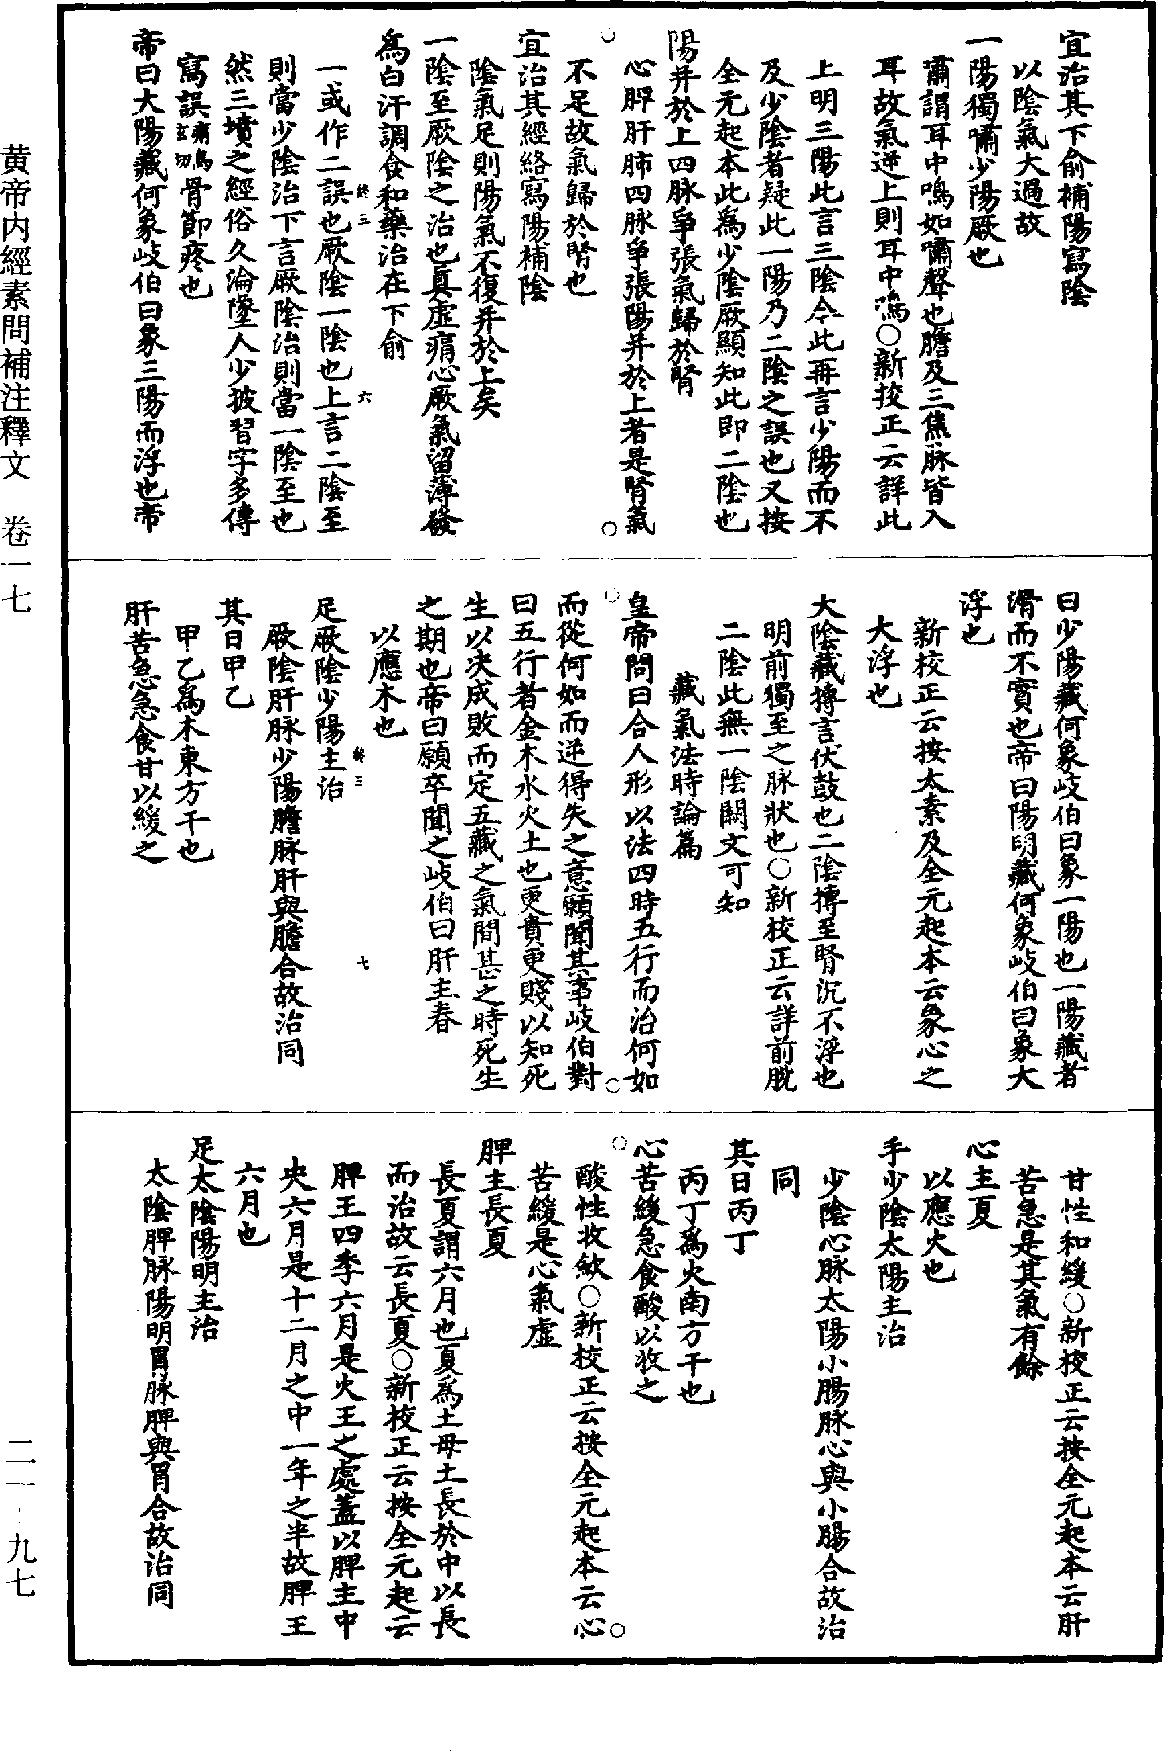 宜治其下俞補陽寫陰
以陰氣大過故
一陽獨嘯少陽厥也
嘯謂耳中鳴如嘯聲也膽及三焦脉皆入
耳故氣逆上則耳中鳴○新挍正云詳此
上明三陽此言三陰今此再言少陽而不
及少陰者疑此一陽乃二陰之誤也又按
全元起本此爲少陰厥顯知此即二陰也
陽并於上四脉爭張氣歸於腎
心脾肝肺四脉爭張陽并於上者是腎氣
不足故氣歸於腎也
宜治其經絡寫陽補陰
陰氣足則陽氣不復并於上矣
一陰至厥陰之治也真虛㾓心厥氣留薄發
爲白汗調食和藥治在下俞
一或作二誤也厥陰一陰也上言二陰至
則當少陰治下言厥陰治則當一陰至也
然三墳之經俗久淪墜人少披習字多傳
寫誤㾓烏玄切骨節疼也
帝曰大陽藏何象岐伯曰象三陽而浮也帝
曰少陽藏何象岐伯曰象一陽也一陽藏者
滑而不實也帝曰陽明藏何象岐伯曰象大
浮也
新校正云按太素及全元起本云象心之
大浮也
大陰藏摶言伏鼓也二陰摶至腎沉不浮也
明前獨至之脉狀也○新校正云詳前脫
二陰此無一陰闕文可知
藏氣法時論篇
皇帝問曰合人形以法四時五行而治何如
而從何如而逆得失之意願聞其事岐伯對
曰五行者金木水火土也更貴更賤以知死
生以決成敗而定五藏之氣間甚之時死生
之期也帝曰願卒聞之岐伯曰肝主春
以應木也
足厥陰少陽主治
厥陰肝脉少陽膽脉肝與膽合故治同
其日甲乙
甲乙爲木東方干也
肝苦急急食甘以緩之
甘性和緩○新校正云按全元起本云肝
苦急是其氣有餘
心主夏
以應火也
手少陰太陽主治
少陰心脉太陽小腸脉心與小腸合故治
同
其日丙丁
丙丁爲火南方干也
心苦緩急食酸以收之
酸性收斂○新校正云按全元起本云心
苦緩是心氣虛
脾主長夏
長夏謂六月也夏爲土母土長於中以長
而治故云長夏○新校正云按全元起云
脾王四季六月是火王之處蓋以脾主中
央六月是十二月之中一年之半故脾王
六月也
足太陰陽明主治
太陰脾脉陽明胃脉脾與胃合故治同
終三
六
終三
七
黄帝内經素問補注釋文 卷一七
二一-九七